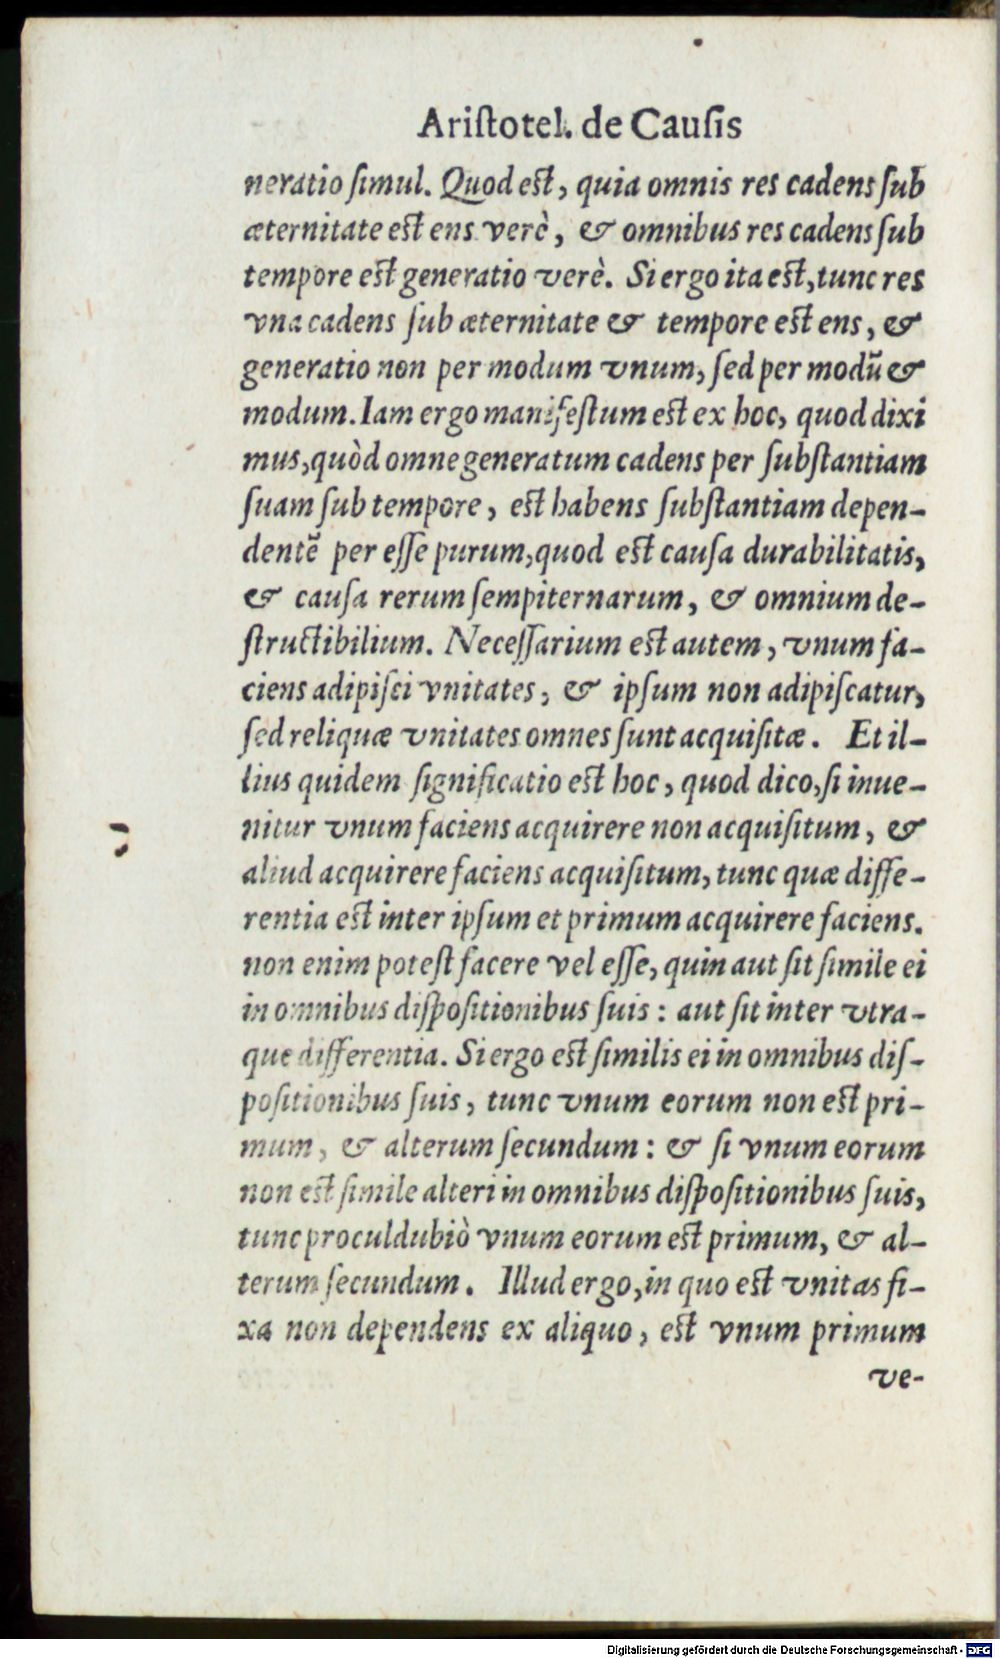 Ariſtotel. de Cauſis
neratio ſimul. Quod eſt, quia omnis res cadens ſub
æternitate eſt ens verè, & omnibus res cadens ſub
tempore eſt generatio verè. Si ergo ita eſt, tunc res
vna cadens ſub æternitate & tempore eſt ens, &
generatio non per modum vnum, ſed per modũ &
modum. Iam ergo manifeſtum eſt ex hoc, quod dixi
mus, quòd omne generatum cadens per ſubſtantiam
ſuam ſub tempore, eſt habens ſubſtantiam depen-
dentẽ per eſſe purum, quod eſt cauſa durabilitatis,
& cauſa rerum ſempiternarum, & omnium de-
ſtructibilium. Neceſſarium eſt autem, vnum fa-
ciens adipiſci vnitates, & ipſum non adipiſcatur,
ſed reliquæ vnitates omnes ſunt acquiſitæ. Et il-
lius quidem ſignificatio eſt hoc, quod dico, ſi inue-
nitur vnum faciens acquirere non acquiſitum, &
aliud acquirere faciens acquiſitum, tunc quæ diffe-
rentia eſt inter ipſum et primum acquirere faciens.
non enim poteſt facere vel eſſe, quin aut ſit ſimile ei
in omnibus diſpoſitionibus ſuis: aut ſit inter vtra-
que differentia. Si ergo eſt ſimilis ei in omnibus diſ-
poſitionibus ſuis, tunc vnum eorum non eſt pri-
mum, & alterum ſecundum: & ſi vnum eorum
non eſt ſimile alteri in omnibus diſpoſitionibus ſuis,
tunc proculdubiò vnum eorum eſt primum, & al-
terum ſecundum. Illud ergo, in quo eſt vnitas fi-
xa non dependens ex aliquo, eſt vnum primum
ve-
Digitalisierung gefördert durch die Deutsche Forschungsgemeinschaft - DFG